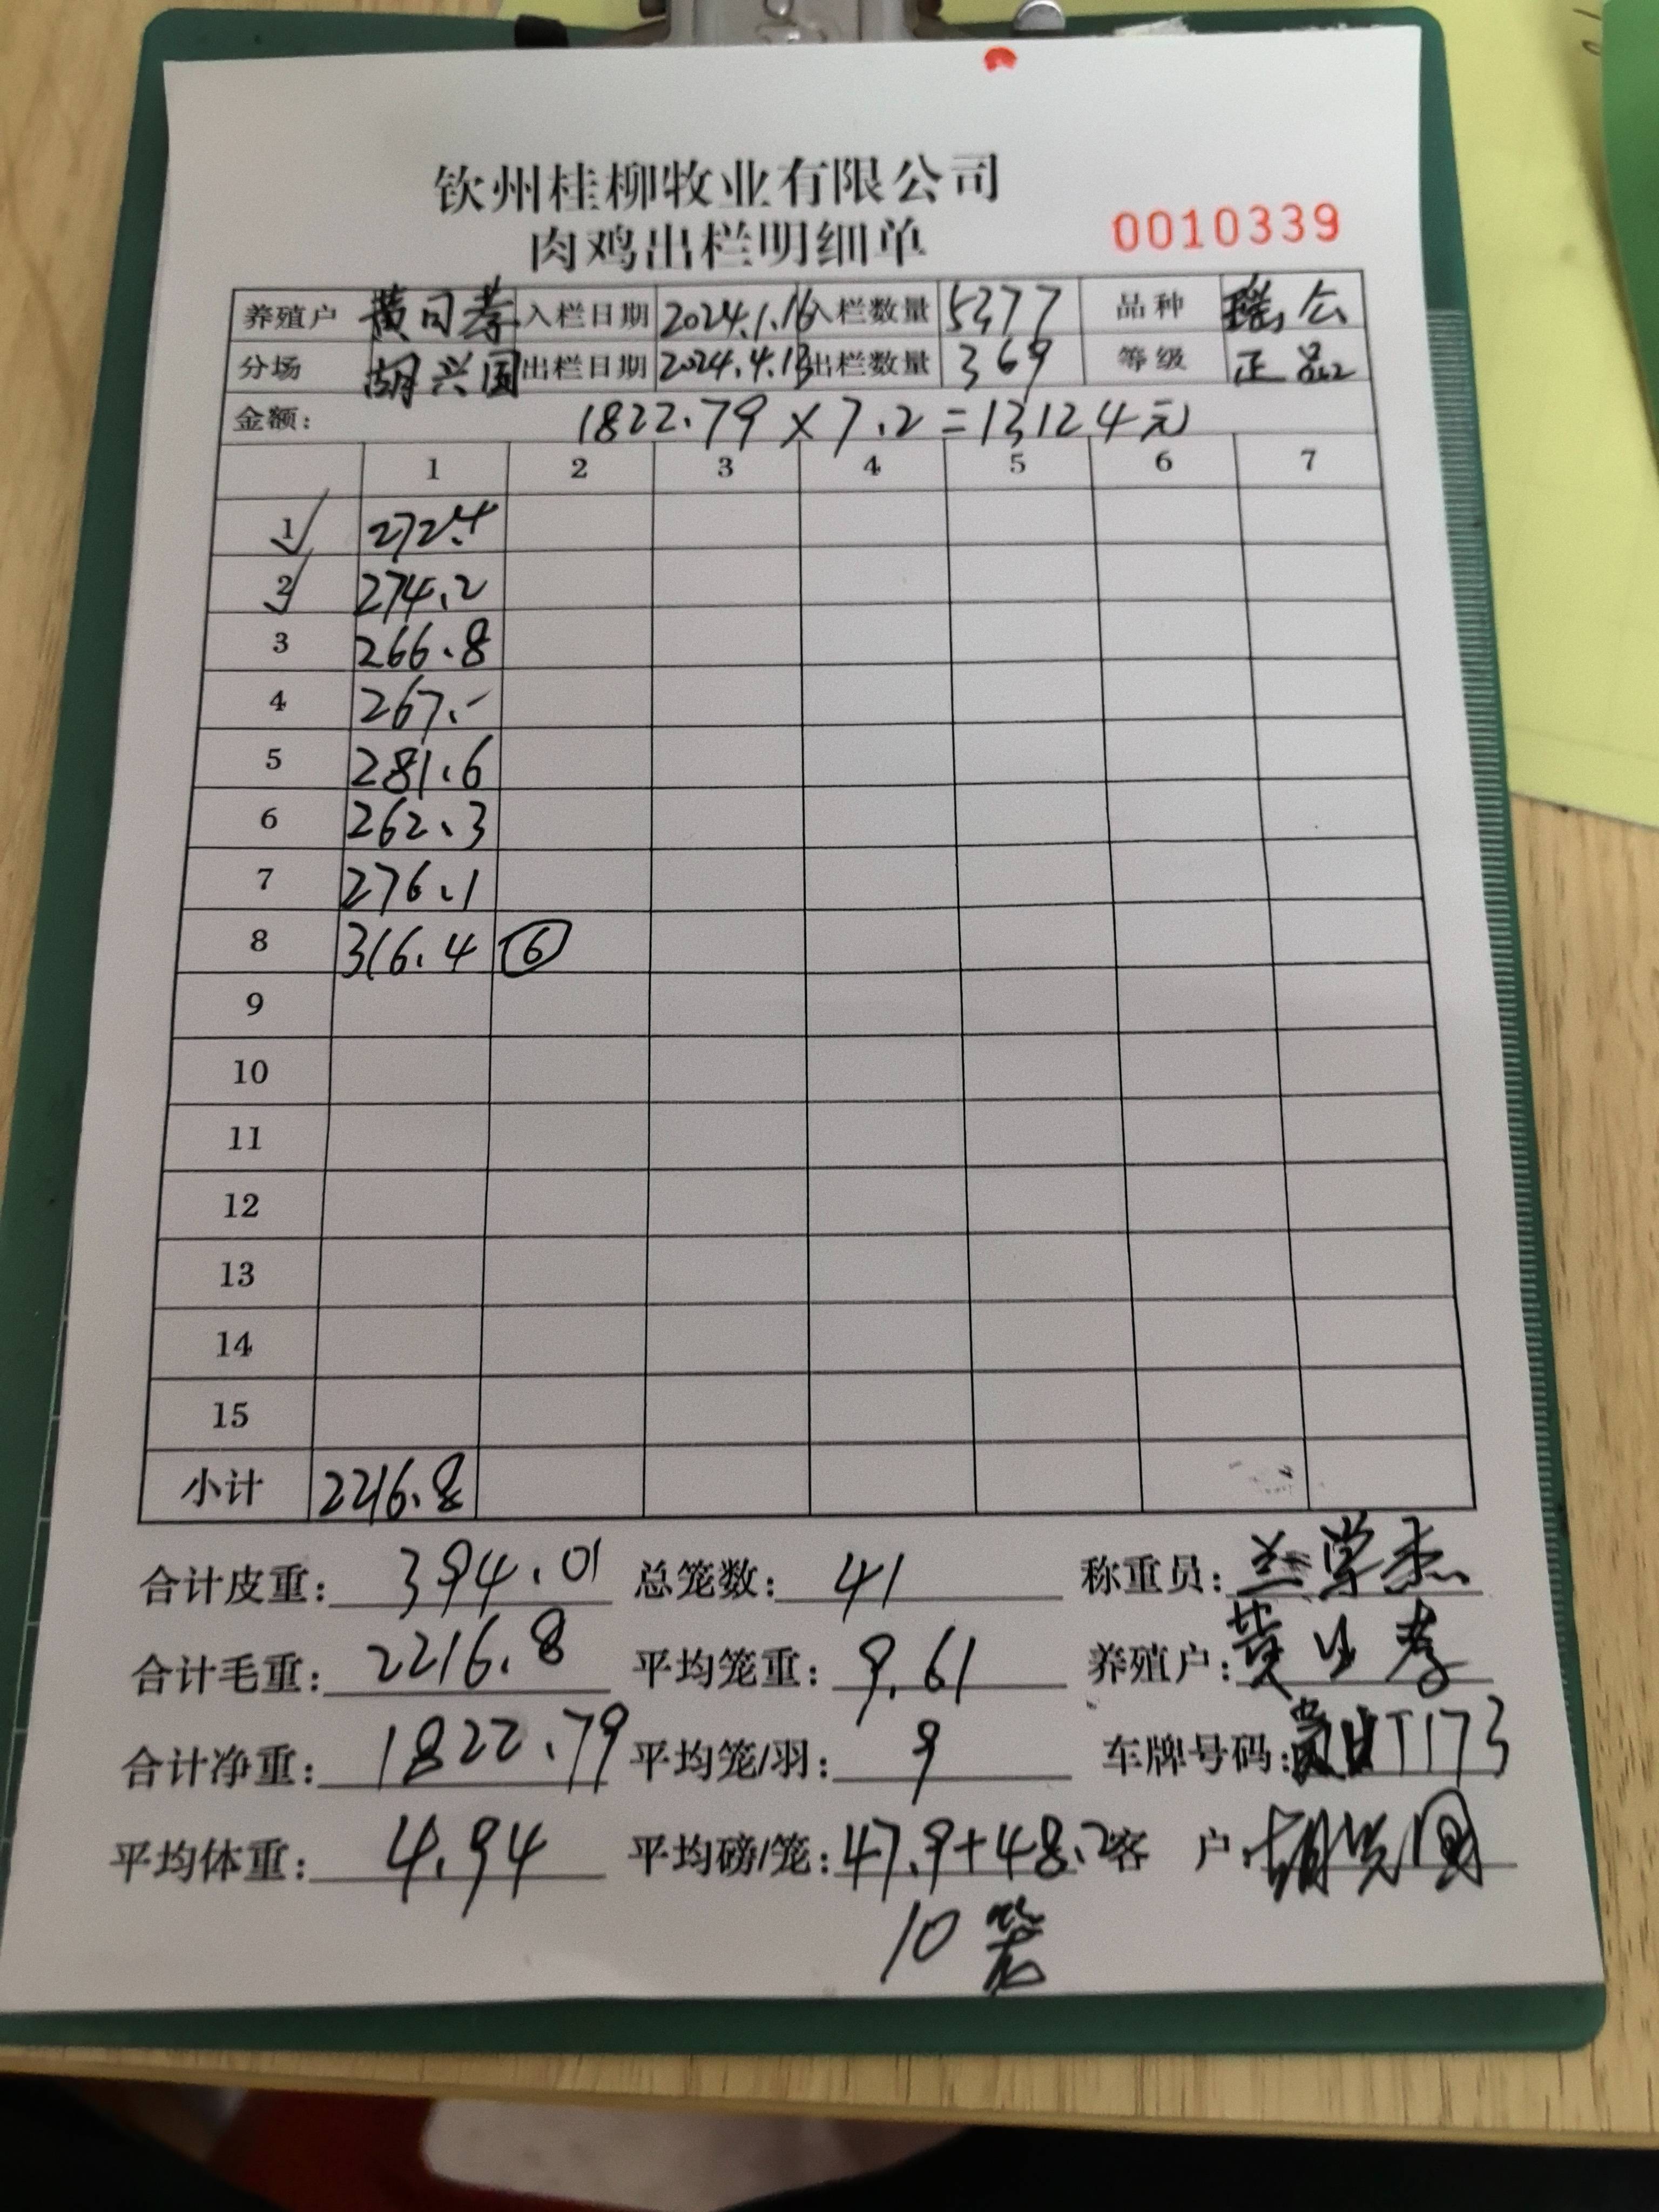 钦州桂柳牧业有限公司
肉鸡出栏明细单
0010339
养殖户 黄日孝 入栏日期 2024.1.16 入栏数量 5377 品种 瑶公
分场 胡兴国 出栏日期 2024.4.13 出栏数量 369 等级 正品
金额: 1822.79×7.2=13124元
1 2 3 4 5 6 7
1 272.4
2 274.2
3 266.8
4 267.-
5 281.6
6 262.3
7 276.1
8 316.4 6
9
10
11
12
13
14
15
小计 2216.8
合计皮重: 394.01 总笼数: 41 称重员: 兰学杰
合计毛重: 2216.8 平均笼重: 9.61 养殖户: 黄日孝
合计净重: 1822.79 平均笼/羽: 9 车牌号码: T173
平均体重: 4.94 平均磅/笼: 47.9+48.2 客户: 胡兴国
10笼